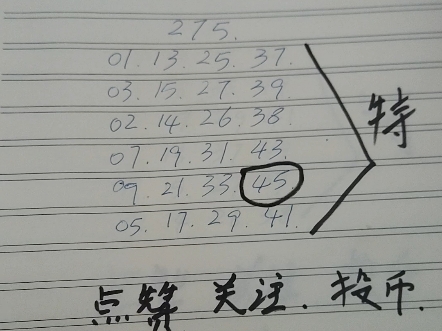 275.
01.13.25.37.
03.15.27.39
02.14.26.38.
07.19.31.43.
09.21.33.45
05.17.29.41.
特
点赞 关注.投币.